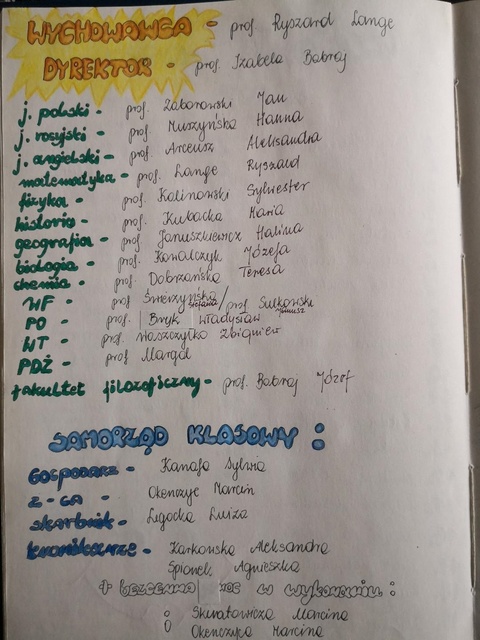 WYCHOWAWCA - prof. Ryszard Lange
DYREKTOR - prof. Izabela Babraj
j. polski - prof. Zaborowski Jan
j. rosyjski - prof. Muszyńska Hanna
j. angielski - prof. Arceusz Aleksandra
matematyka - prof. Lange Ryszard
fizyka - prof. Kalinowski Sylwester
historia - prof. Kubacka Maria
geografia - prof. Januszkiewicz Halina
biologia - prof. Kowalczyk Józefa
chemia - prof. Dobrzańska Teresa
WF - prof. Świerzyńska / prof. Sułkowski Janusz
PO - prof. Bryk Władysław
WT - prof. Zbigniew
PDŻ - prof. Margol
fakultet filozoficzny - prof. Babraj Józef
SAMORZĄD KLASOWY :
Gospodarz - Kanafa Sylwia
Z-CA - Okenczyc Marcin
skarbnik - Legocka Luiza
kronikarze - Karkowska Aleksandra
Spionek Agnieszka
+ bezcenna w wykonaniu :
Skwatowicza Marcina
Okenczyca Marcina